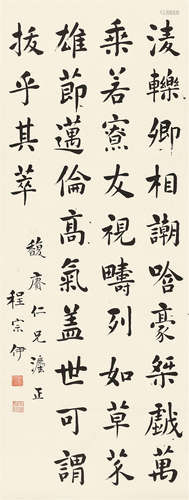 淩轢卿相謿哈豪桀戲萬
乘若寮友視疇列如草芥
雄節邁倫高氣蓋世可謂
拔乎其萃
馥齋仁兄灋正
程宗伊